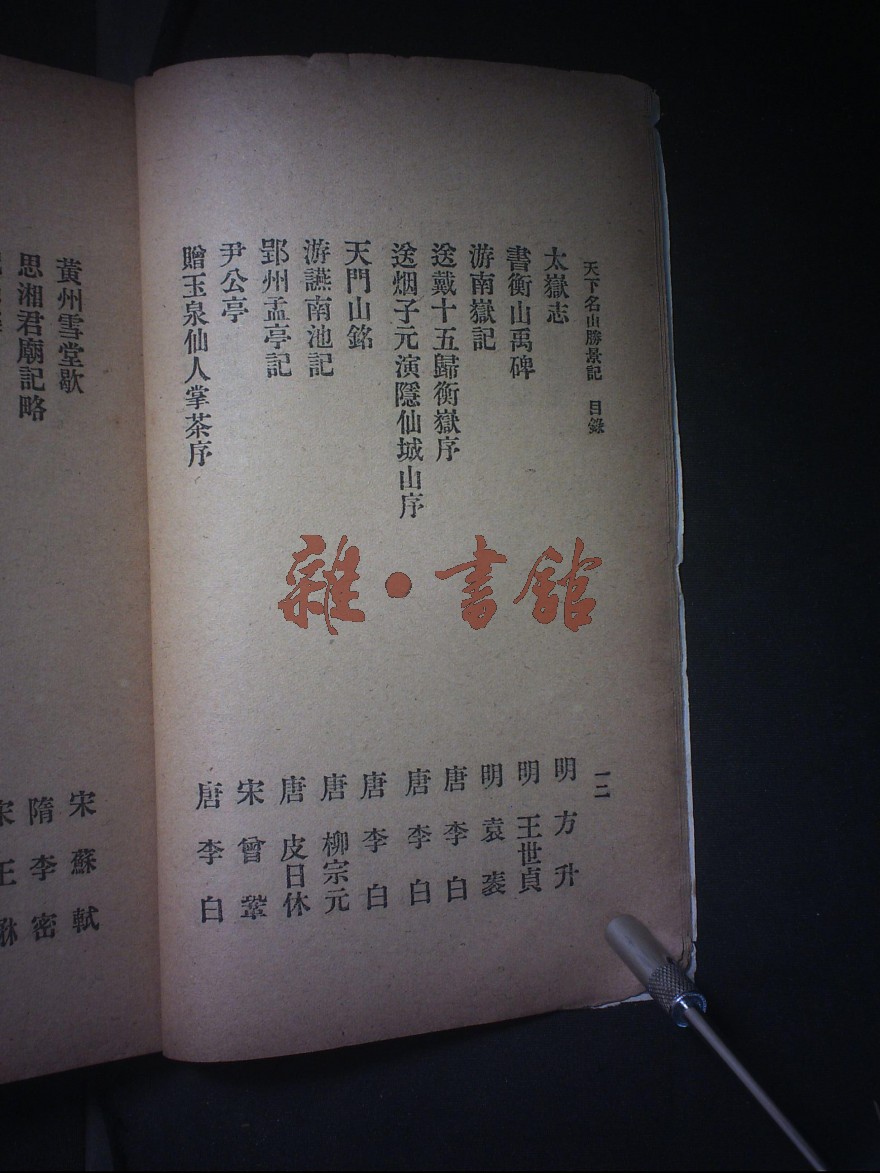 天下名山勝景記 目錄 一二
太嶽志 明 方升
書衡山禹碑 明 王世貞
游南嶽記 明 袁裘
送戴十五歸衡嶽序 唐 李白
送烟子元演隱仙城山序 唐 李白
天門山銘 唐 李白
游讌南池記 唐 柳宗元
郢州孟亭記 唐 皮日休
尹公亭 宋 曾鞏
贈玉泉仙人掌茶序 唐 李白
雜·書館
黃州雪堂歌 宋 蘇軾
思湘君廟記略 隋 李密
宋 王